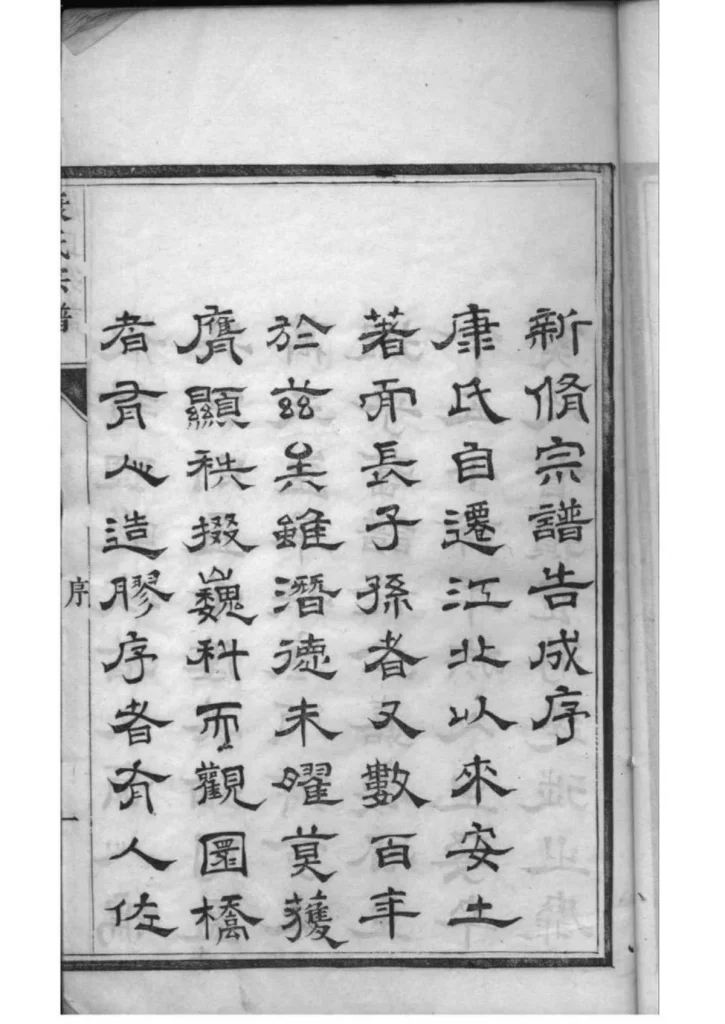 新脩宗譜告成序
康氏自遷江北以來安土
著而長子孫者又數百年
於茲矣雖潛德未曜莫獲
膺顯秩掇巍科而觀圜橋
者有心造膠序者有人佐
氏宗譜
序
一